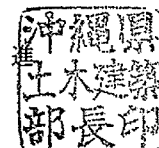 沖縄県
進
土木建築
部長印